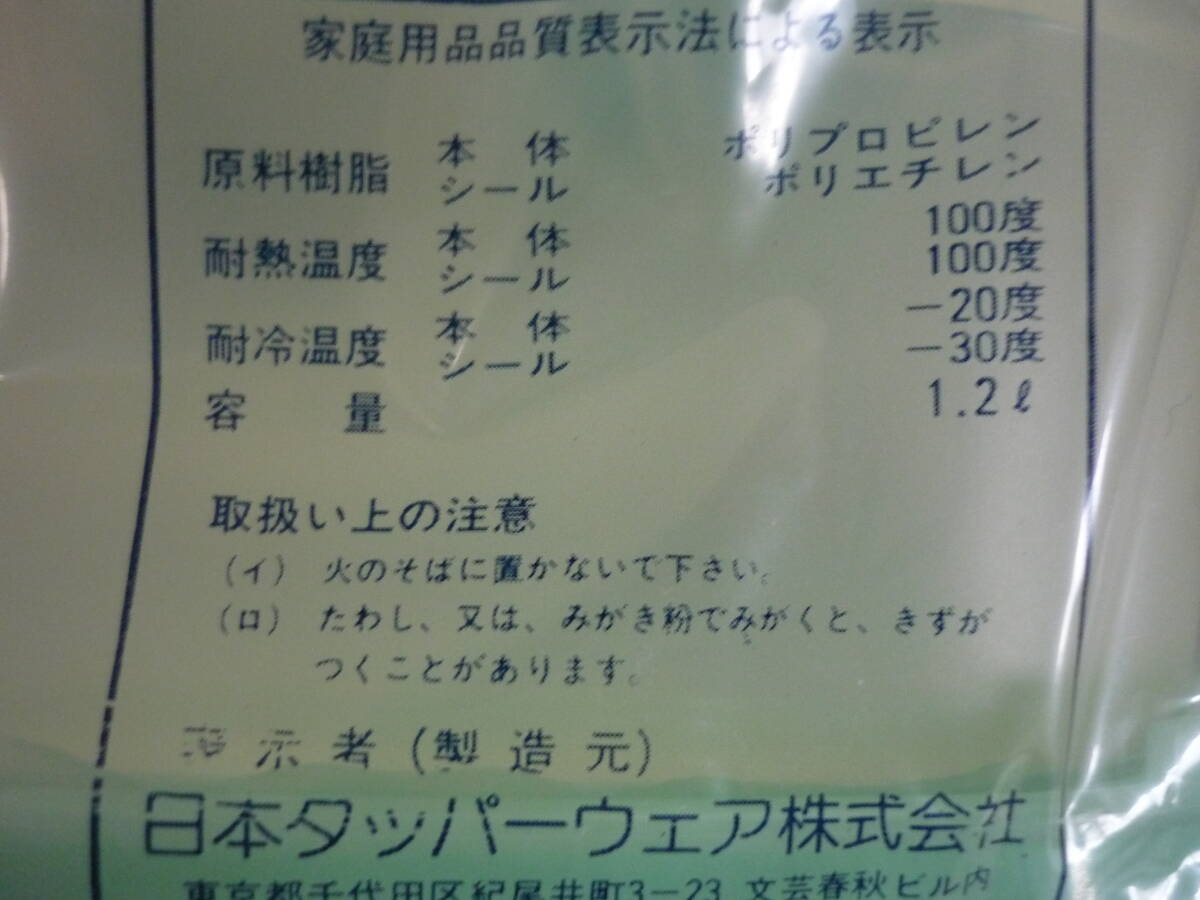 家庭用品品質表示法による表示
原料樹脂 本 体 ポリプロピレン
シール ポリエチレン
耐熱温度 本 体 100度
シール 100度
耐冷温度 本 体 −20度
シール −30度
容 量 1.2ℓ
取扱い上の注意
(イ) 火のそばに置かないで下さい。
(ロ) たわし、又は、みがき粉でみがくと、きずが
つくことがあります。
表示者(製造元)
日本タッパーウェア株式会社
東京都千代田区紀尾井町3−23 文芸春秋ビル内